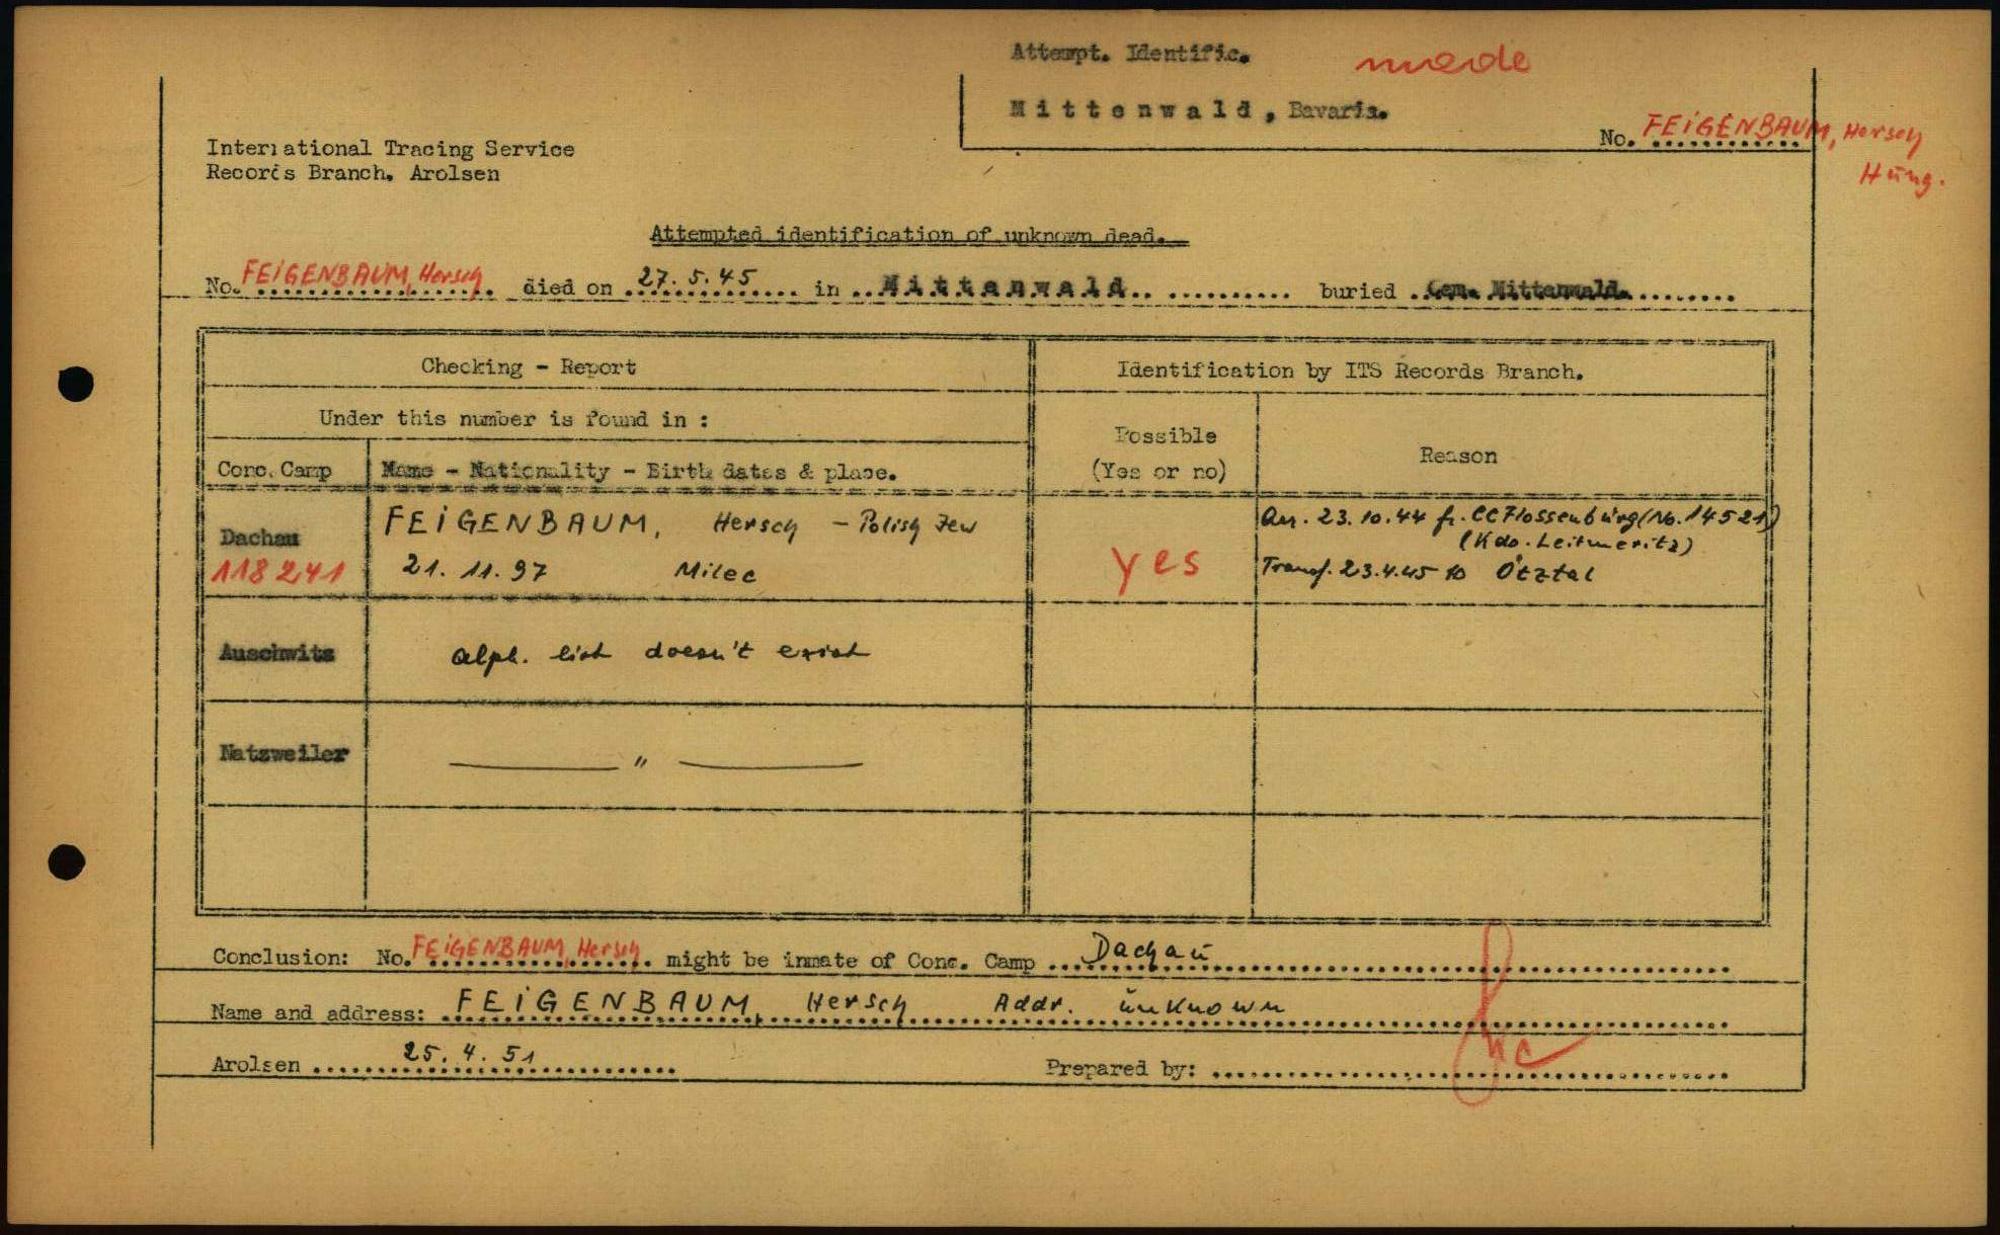 Attempt. Identific. made
Mittenwald, Bavaria.
No. FEIGENBAUM, Hersch
Hung.
International Tracing Service
Records Branch. Arolsen
Attempted identification of unknown dead.
No. FEIGENBAUM, Hersch died on 27.5.45 in Mittenwald buried Cem. Mittenwald.
Checking - Report Identification by ITS Records Branch.
Under this number is found in :
Possible
(Yes or no)
Reason
Conc. Camp Name - Nationality - Birth dates & place.
Dachau
118241
FEIGENBAUM, Hersch - Polish Jew
21.11.97 Milec
yes
Arr. 23.10.44 fr. CC Flossenbürg (No. 14521)
(Kdo. Leitmeritz)
Transf. 23.4.45 to Ötztal
Auschwitz alph. list doesn't exist
Natzweiler — " —
Conclusion: No. FEIGENBAUM, Hersch might be inmate of Conc. Camp Dachau
Name and address: FEIGENBAUM, Hersch Addr. unknown
Arolsen 25.4.51 Prepared by: